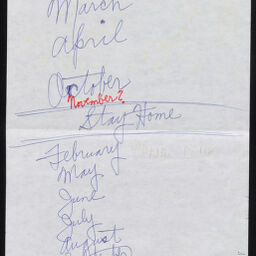 March
April
October
November?
Stay Home
February
May
June
July
August